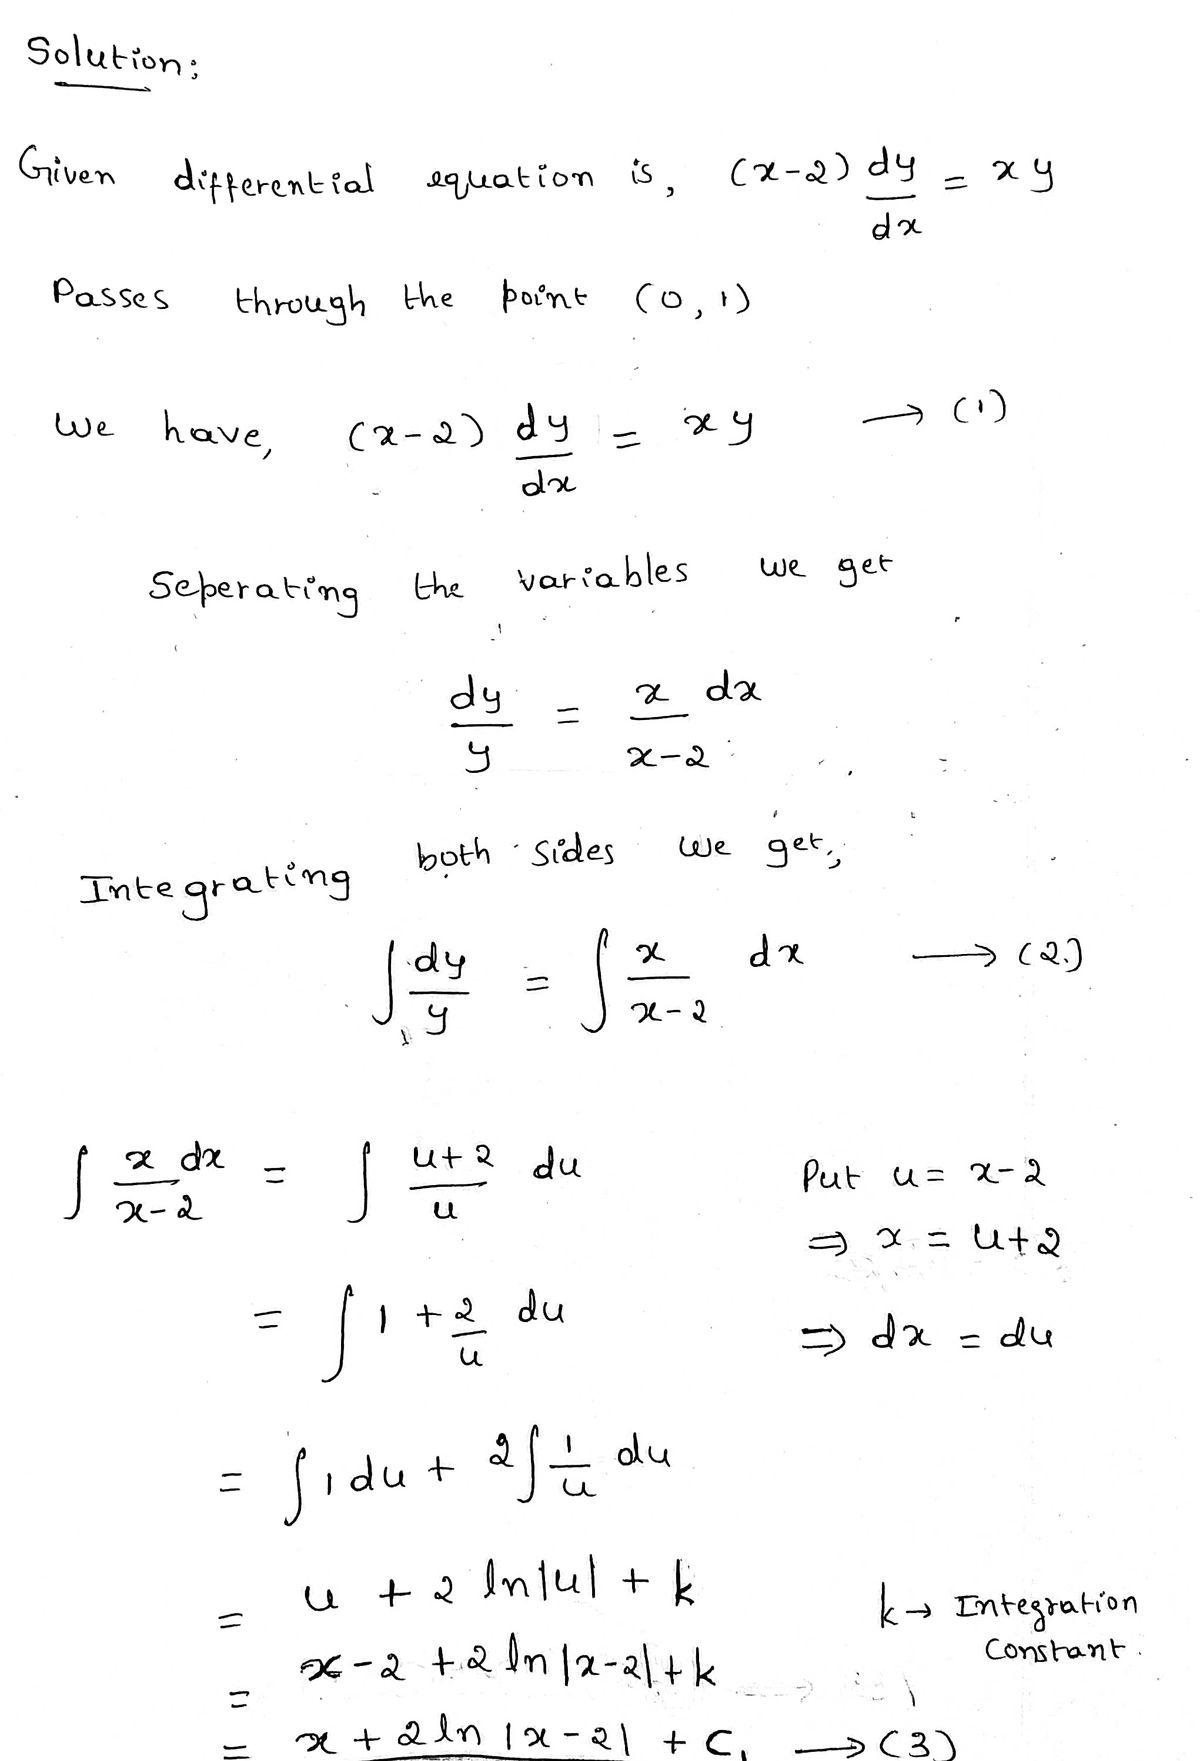 Solution:
Given differential equation is, (x-2) dy/dx = xy
Passes through the point (0,1)
We have, (x-2) dy/dx = xy → (1)
Seperating the variables we get
dy/y = x/(x-2) dx
Integrating both sides we get,
∫ dy/y = ∫ x/(x-2) dx → (2)
∫ x dx/(x-2) = ∫ (u+2)/u du Put u = x-2
⇒ x = u+2
= ∫ 1 + 2/u du ⇒ dx = du
= ∫ 1 du + 2 ∫ 1/u du
= u + 2 ln|u| + k k → Integration Constant.
= x-2 + 2 ln|x-2| + k
= x + 2 ln|x-2| + C₁ → (3)